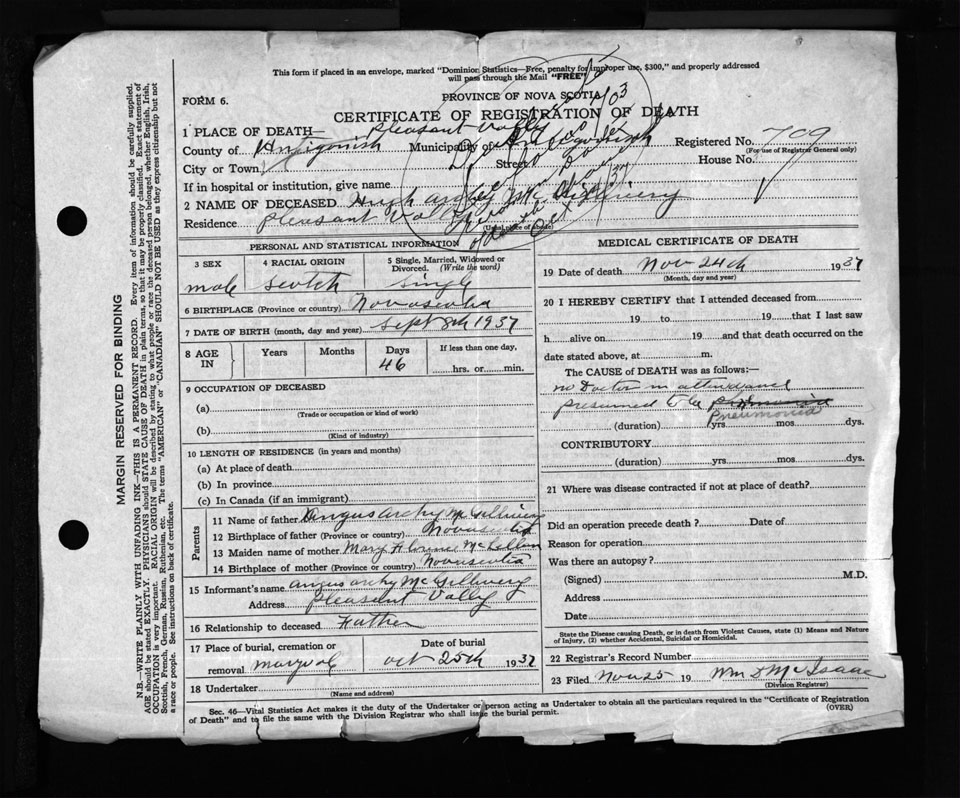 This form if placed in an envelope, marked "Dominion Statistics—Free, penalty for improper use, $300," and properly addressed
will pass through the Mail "FREE"
FORM 6.
PROVINCE OF NOVA SCOTIA
CERTIFICATE OF REGISTRATION OF DEATH
1 PLACE OF DEATH— Pleasant Vally
County of Antigonish Municipality of Antigonish Registered No. 709
(For use of Registrar General only)
City or Town Street House No.
If in hospital or institution, give name
2 NAME OF DECEASED Hugh Archy McGillivery
Residence Pleasant Vally
(Usual place of abode)
PERSONAL AND STATISTICAL INFORMATION
3 SEX 4 RACIAL ORIGIN 5 Single, Married, Widowed or
Divorced. (Write the word)
male Scotch Single
6 BIRTHPLACE (Province or country) Novascotia
7 DATE OF BIRTH (month, day and year) Sept 8th 1937
8 AGE IN Years Months Days If less than one day,
46 hrs. or min.
9 OCCUPATION OF DECEASED
(a)
(Trade or occupation or kind of work)
(b)
(Kind of industry)
10 LENGTH OF RESIDENCE (in years and months)
(a) At place of death
(b) In province
(c) In Canada (if an immigrant)
Parents
11 Name of father Angus archy McGillivery
12 Birthplace of father (Province or country) Novascotia
13 Maiden name of mother Mary Florence McLellan
14 Birthplace of mother (Province or country) Novascotia
15 Informant's name angus archy McGillivery
Address Pleasant Vally
16 Relationship to deceased Father
17 Place of burial, cremation or Date of burial
removal maryvale oct 25th 1937
18 Undertaker
(Name and address)
MEDICAL CERTIFICATE OF DEATH
19 Date of death Nov 24th 1937
(Month, day and year)
20 I HEREBY CERTIFY that I attended deceased from
19 to 19 that I last saw
h alive on 19 and that death occurred on the
date stated above, at m.
The CAUSE of DEATH was as follows:—
no Doctor in attendance
presumed to be
Pneumonia
(duration) yrs. mos. dys.
CONTRIBUTORY
(duration) yrs. mos. dys.
21 Where was disease contracted if not at place of death?
Did an operation precede death? Date of
Reason for operation
Was there an autopsy?
(Signed) M.D.
Address
Date
State the Disease causing Death, or in death from Violent Causes, state (1) Means and Nature
of Injury, (2) whether Accidental, Suicidal or Homicidal.
22 Registrar's Record Number
23 Filed Nov 25 19 Wm D McIsaac
(Division Registrar)
Sec. 46—Vital Statistics Act makes it duty of the Undertaker or person acting as Undertaker to obtain all the particulars required in the "Certificate of Registration
of Death" and to file the same with the Division Registrar who shall issue the burial permit. (OVER)
MARGIN RESERVED FOR BINDING
N.B.—WRITE PLAINLY WITH UNFADING INK—THIS IS A PERMANENT RECORD. Every item of information should be carefully supplied.
AGE should be stated EXACTLY. PHYSICIANS should STATE CAUSE OF DEATH in plain terms, so that it may be properly classified. Exact statement of
OCCUPATION is very important. RACIAL ORIGIN will be described by stating to what people or race the deceased person belonged, whether English, Irish,
Scottish, French, German, Russian, Ruthenian, etc. The terms "AMERICAN" or "CANADIAN" SHOULD NOT BE USED as they express citizenship but not
a race or people. See instructions on back of certificate.